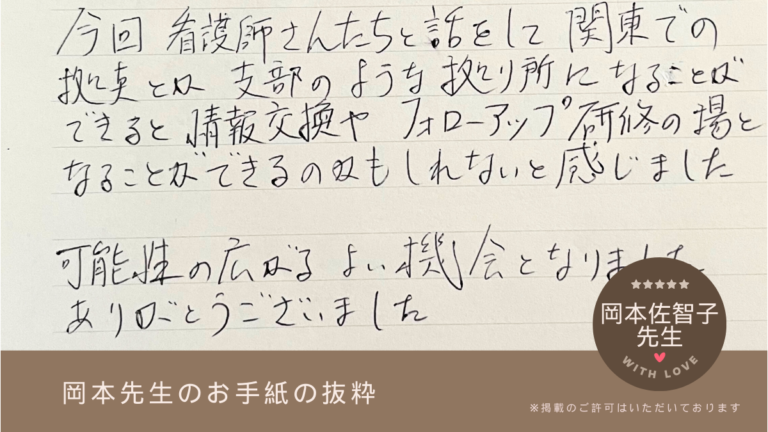 今回 看護師さんたちと話をして 関東での
拠点とか 支部のような拠り所になることが
できると 情報交換や フォローアップ研修の場と
なることができるのかもしれないと感じました
可能性の広がる よい機会となりました
ありがとうございました
★★★★★
岡本佐智子
先生
WITH LOVE
岡本先生のお手紙の抜粋
※掲載のご許可はいただいております